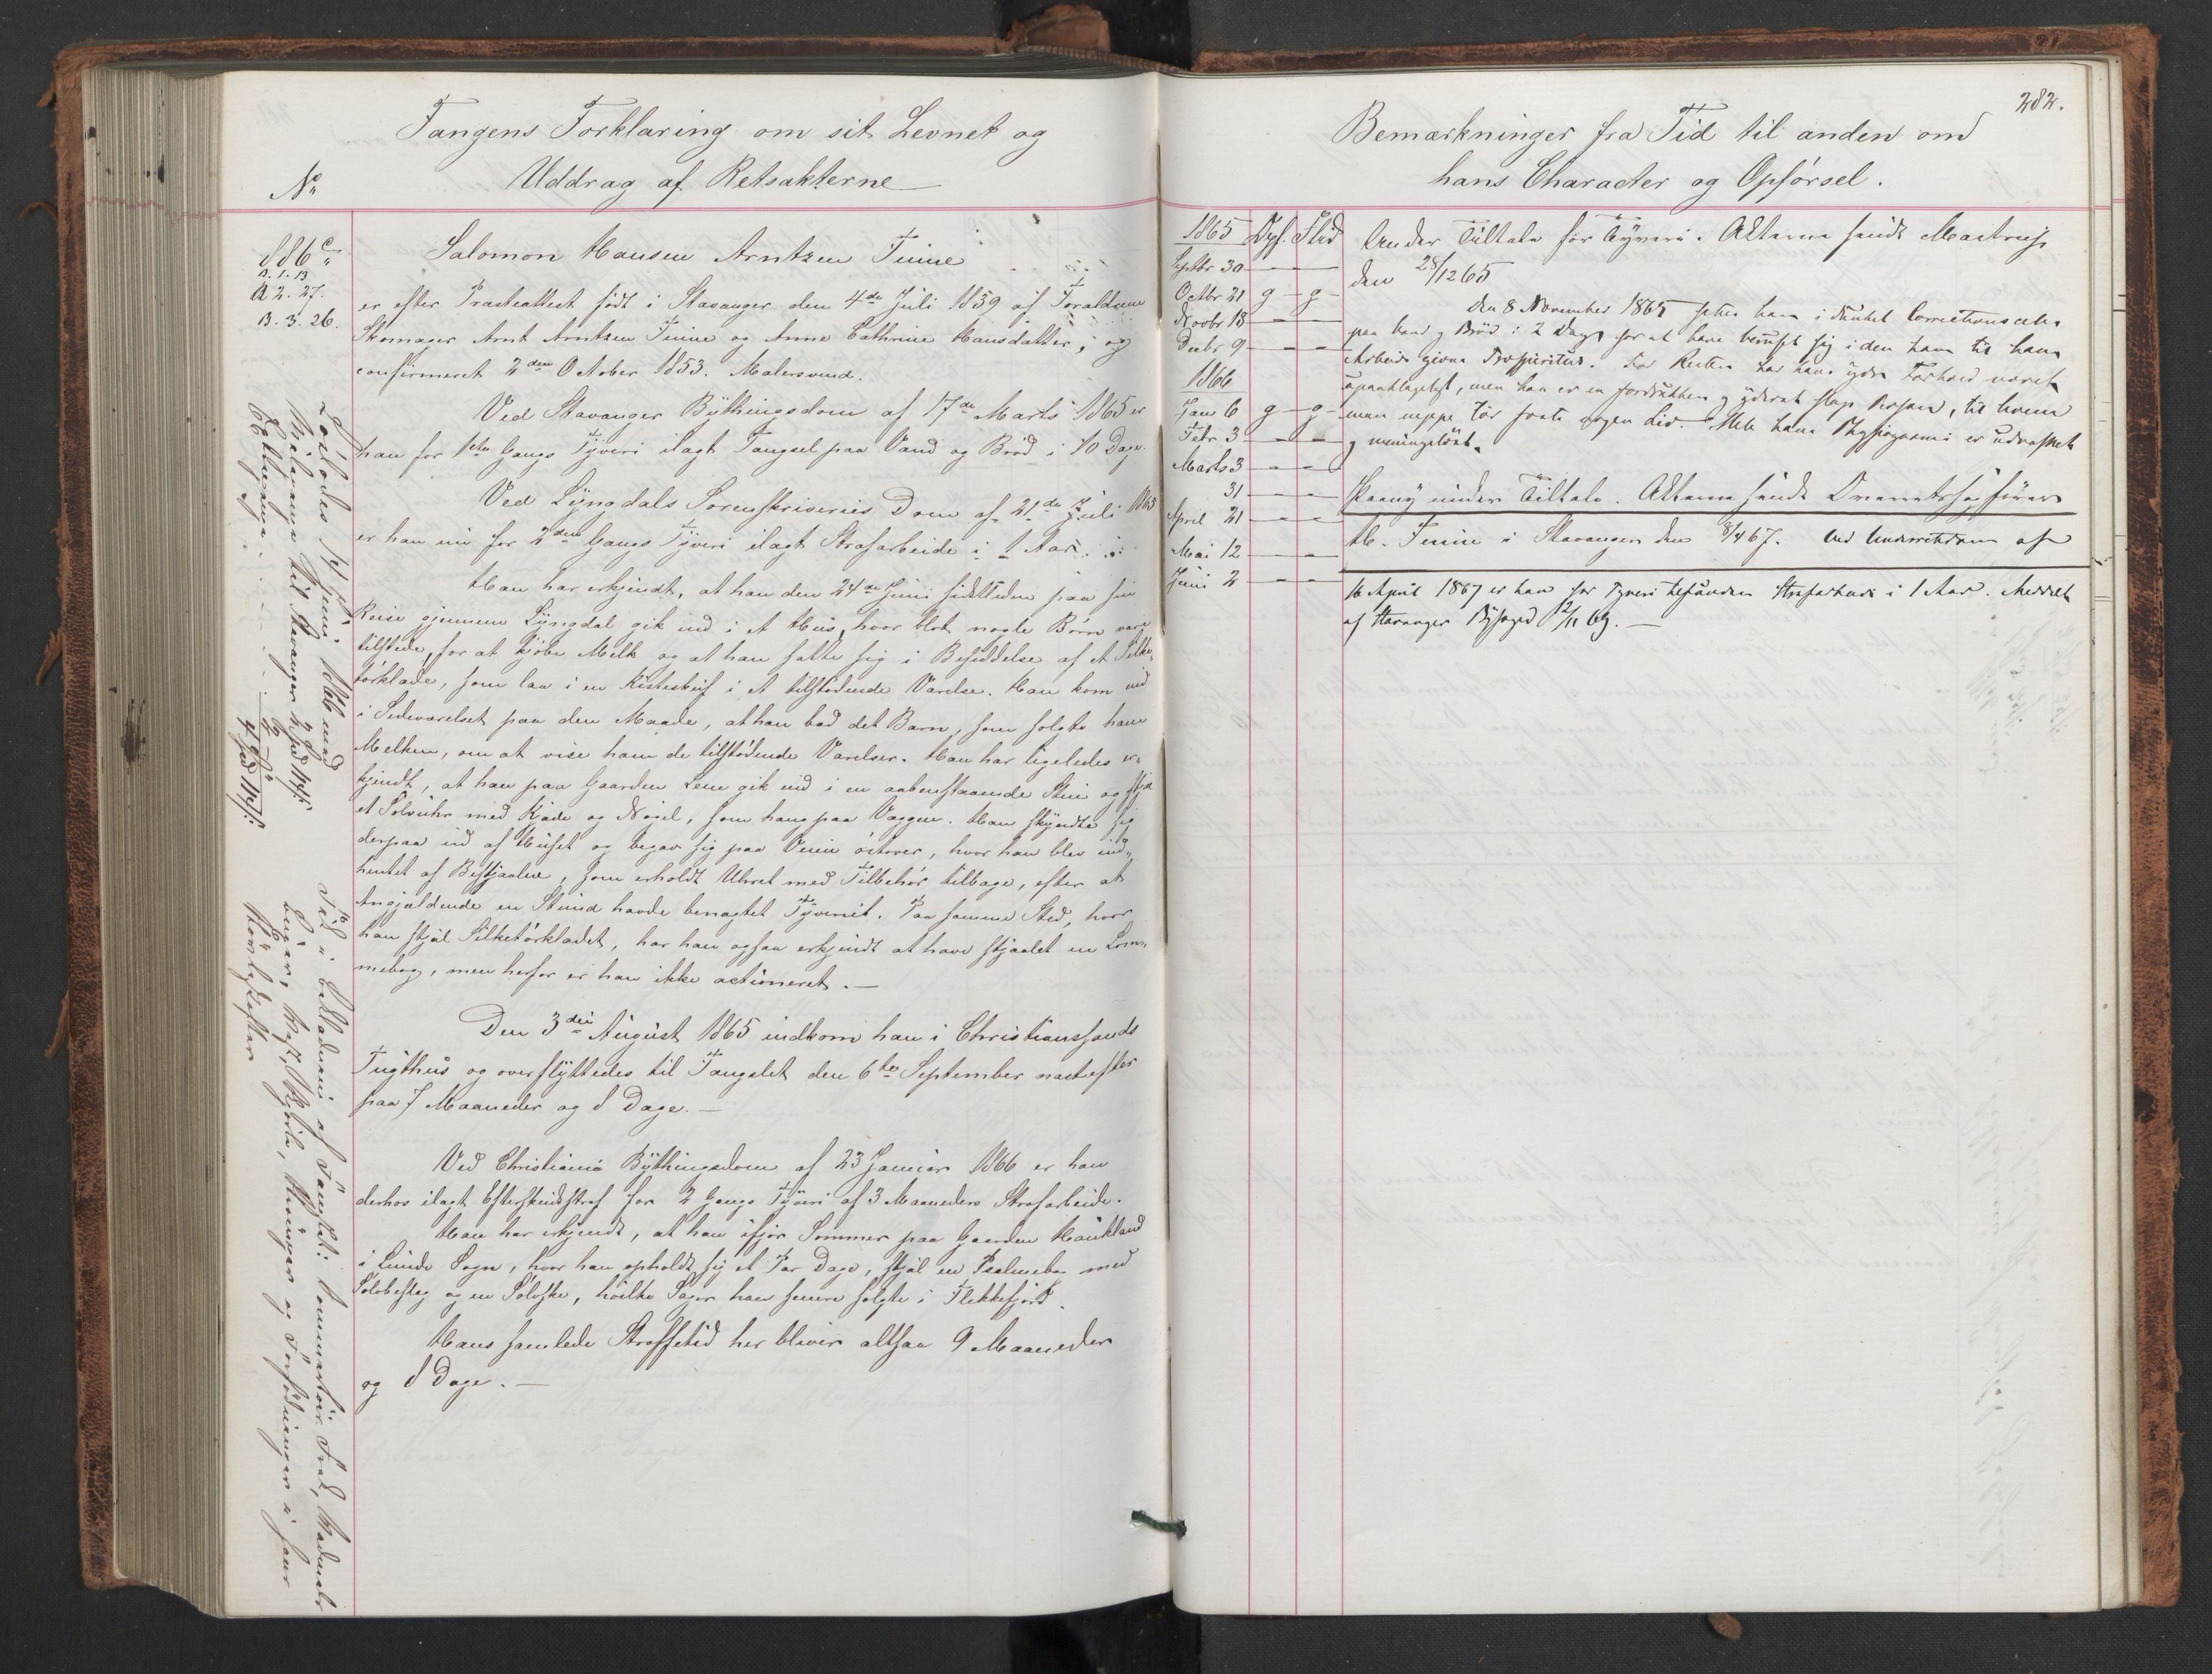 Fangens Forklaring om sit Levnet og
Uddrag af Retsakterne
No
886 c
B. 1. 13
A 2. 27.
B. 3. 26.
Salomon Hansen Arntzen Tinne
er efter Præsteattest født i Stavanger den 4de Juli 1839 af Forældrene
Skomager Arnt Arntzen Tinne og Anne Cathrine Hansdatter, og
confirmeret 2den October 1853. Malersvend.
Ved Stavanger Bythingsdom af 17de Marts 1865 er
han for 1ste Gangs Tyveri ilagt Fængsel paa Vand og Brød i 10 Dage.
Ved Lyngdals Sorenskriveries Dom af 21de Juli 1865
er han nu for 2den Gangs Tyveri ilagt Strafarbeide i 1 Aar.
Han har erkjendt, at han den 24de Juni sidstleden paa sin
Reise gjennem Lyngdal gik ind i et Hus, hvor blot nogle Børn vare
tilstede, for at kjøbe Melk og at han satte sig i Besiddelse af et Silke-
tørklæde, som laa i en Kisteskuf i et tilstødende Værelse. Han kom ind
i Sideværelset paa den Maade, at han bad det Barn, som solgte ham
Melken, om at vise ham de tilstødende Værelser. Han har ligeledes er-
kjendt, at han paa Gaarden Lene gik ind i en aabenstaaende Stue og stjal
et Sølvuhr med Kjæde og Nøgel, som hang paa Væggen. Han skyndte sig
derpaa ud af Huset og begav sig paa Veien østover, hvor han blev ind-
hentet af Bestjaalne, som erholdt Uhret med Tilbehør tilbage, efter at
Angjældende en Stund havde benægtet Tyveriet. Paa samme Sted, hvor
han stjal Silketørklædet, har han ogsaa erkjendt at have stjaalet en Lom-
mebog, men herfor er han ikke actioneret. —
Den 3die August 1865 indkom han i Christianssands
Tugthus og overflyttedes til Fængslet den 6te September næstefter
paa 7 Maaneder og 8 Dage. —
Ved Christiania Bythingsdom af 23 Januar 1866 er han
derhos ilagt Efterskudsstraf for 2 Gangs Tyveri af 3 Maaneders Strafarbeide.
Han har erkjendt, at han ifjor Sommer paa Gaarden Haukland
i Lunde Sogn, hvor han opholdt sig et Par Dage, stjal en Psalmebog med
Sølvbeslag og en Sølvske, hvilke Sager han senere solgte i Flekkefjord.
Hans samlede Straffetid her bliver altsaa 9 Maaneder
og 8 Dage. —
Løslodes Juni 1866 med
til Stavanger
282.
Bemærkninger fra Tid til anden om
hans Character og Opførsel.
1865 Opf. Flid
Septbr 30 — —
Octbr 21 g – g –
Novbr 18 — —
Decbr 9 — —
1866
Janr 6 g – g –
Febr 3 — —
Marts 3 — —
31 — —
April 21 — —
Mai 12 — —
Juni 2 — —
Under Tiltale for Tyveri. Akterne sendt Mastrup
den 28/12 65
Den 8 November 1865 sattes han i dunkel Correctionscelle
paa Vand og Brød i 2 Dage for at have beruset sig i den ham til hans
Arbeide givne Træspiritus. For Resten har hans ydre Forhold været
upaaklageligt, men han er en fordrukken og yderst slap Person, til hvem
man neppe tør fæste nogen Lid. Hele hans Physiognomi er udvasket
og meningsløst.
Paany under Tiltale. Akterne sendt Overretssagfører
H. Finne i Stavanger den 8/4 67. Ved Underretsdom af
16 April 1867 er han for Tyveri befunden Strafarbeide i 1 Aar. Meddelt
af Stavanger Byfoged 12/11 69. —